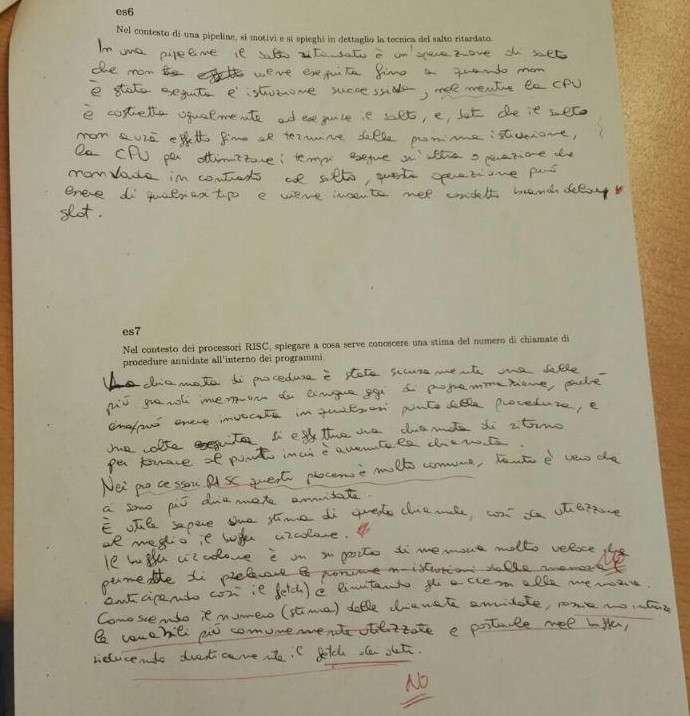 es6
Nel contesto di una pipeline, si motivi e si spieghi in dettaglio la tecnica del salto ritardato.
In una pipeline il salto ritardato è un'operazione di salto
che non viene eseguita fino a quando non
è stata eseguita l'istruzione successiva, nel mentre la CPU
è costretta ugualmente ad eseguire il salto, e, dato che il salto
non avrà effetto fino al termine della prossima istruzione,
la CPU per ottimizzare i tempi esegue un'altra operazione che
non vada in contrasto col salto, questa operazione può
essere di qualsiasi tipo e viene inserita nel cosidetto branch delay
slot.
es7
Nel contesto dei processori RISC, spiegare a cosa serve conoscere una stima del numero di chiamate di
procedure annidate all'interno dei programmi.
La chiamata di procedura è stata sicuramente una delle
più grandi invenzioni dei linguaggi di programmazione, perché
essa può essere invocata in qualsiasi punto della procedura, e
una volta eseguita si effettua una chiamata di ritorno
per tornare al punto in cui è avvenuta la chiamata.
Nei processori RISC questi processi è molto comune, tanto è vero che
ci sono più chiamate annidate.
È utile sapere una stima di queste chiamate, così da utilizzare
al meglio il buffer circolare.
Il buffer circolare è un supporto di memoria molto veloce, che
permette di prelevare le prossime n istruzioni dalla memoria
NO
anticipando così il fetch) e limitando gli accessi alla memoria.
Conoscendo il numero (stima) delle chiamate annidate,
le variabili più comunemente utilizzate e portarle nel buffer,
riducendo drasticamente il fetch dei dati.
NO